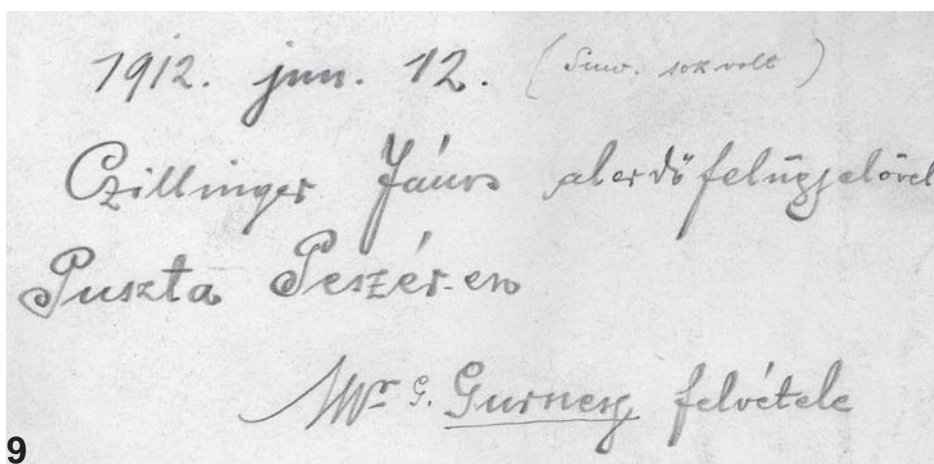 1912. jun. 12. ( sok volt )
Czillinger János alerdőfelügyelővel
Puszta Peszér-en
Mr G. Gurney felvétele
9